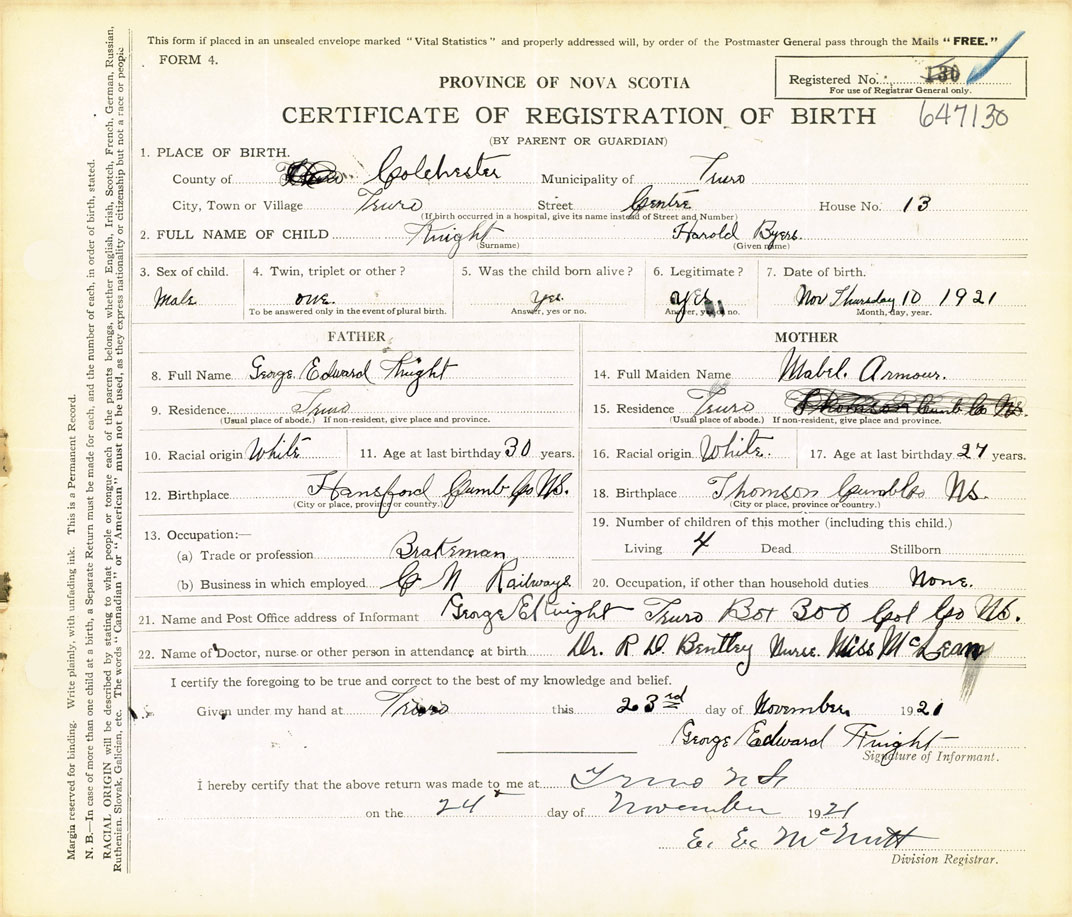 This form if placed in an unsealed envelope marked "Vital Statistics" and properly addressed will, by order of the Postmaster General pass through the Mails "FREE."
FORM 4.
Registered No. 130
For use of Registrar General only.
PROVINCE OF NOVA SCOTIA
CERTIFICATE OF REGISTRATION OF BIRTH
647130
(BY PARENT OR GUARDIAN)
1. PLACE OF BIRTH.
County of Colchester Municipality of Truro
City, Town or Village Truro Street Centre House No. 13
(If birth occurred in a hospital, give its name instead of Street and Number)
2. FULL NAME OF CHILD Knight Harold Byers.
(Surname) (Given name)
3. Sex of child. 4. Twin, triplet or other? 5. Was the child born alive? 6. Legitimate? 7. Date of birth.
Male one. Yes. Yes. Nov Thursday 10 1921
To be answered only in the event of plural birth. Answer, yes or no. Answer, yes or no. Month, day, year.
FATHER
8. Full Name George Edward Knight
9. Residence Truro
(Usual place of abode.) If non-resident, give place and province.
10. Racial origin White 11. Age at last birthday 30 years.
12. Birthplace Hansford Cumb Co NS.
(City or place, province or country.)
13. Occupation:—
(a) Trade or profession Brakeman
(b) Business in which employed C N Railways
MOTHER
14. Full Maiden Name Mabel. Armour.
15. Residence Truro Thomson Cumb Co NS.
(Usual place of abode.) If non-resident, give place and province.
16. Racial origin White. 17. Age at last birthday 27 years.
18. Birthplace Thomson Cumb Co NS.
(City or place, province or country.)
19. Number of children of this mother (including this child.)
Living 4 Dead Stillborn
20. Occupation, if other than household duties None.
21. Name and Post Office address of Informant George E Knight Truro Box 300 Col Co NS.
22. Name of Doctor, nurse or other person in attendance at birth Dr. R D. Bentley Nurse. Miss McLean
I certify the foregoing to be true and correct to the best of my knowledge and belief.
Given under my hand at Truro this 23rd day of November 1921
George Edward Knight
Signature of Informant.
I hereby certify that the above return was made to me at Truro N S
on the 24 day of November 1921
E. E. McNutt
Division Registrar.
Margin reserved for binding. Write plainly, with unfading ink. This is a Permanent Record.
N. B.—In case of more than one child at a birth, a Separate Return must be made for each, and the number of each, in order of birth, stated.
RACIAL ORIGIN will be described by stating to what people or tongue each of the parents belongs, whether English, Irish, Scotch, French, German, Russian,
Ruthenian, Slovak, Galician, etc. The words "Canadian" or "American" must not be used, as they express nationality or citizenship but not a race or people